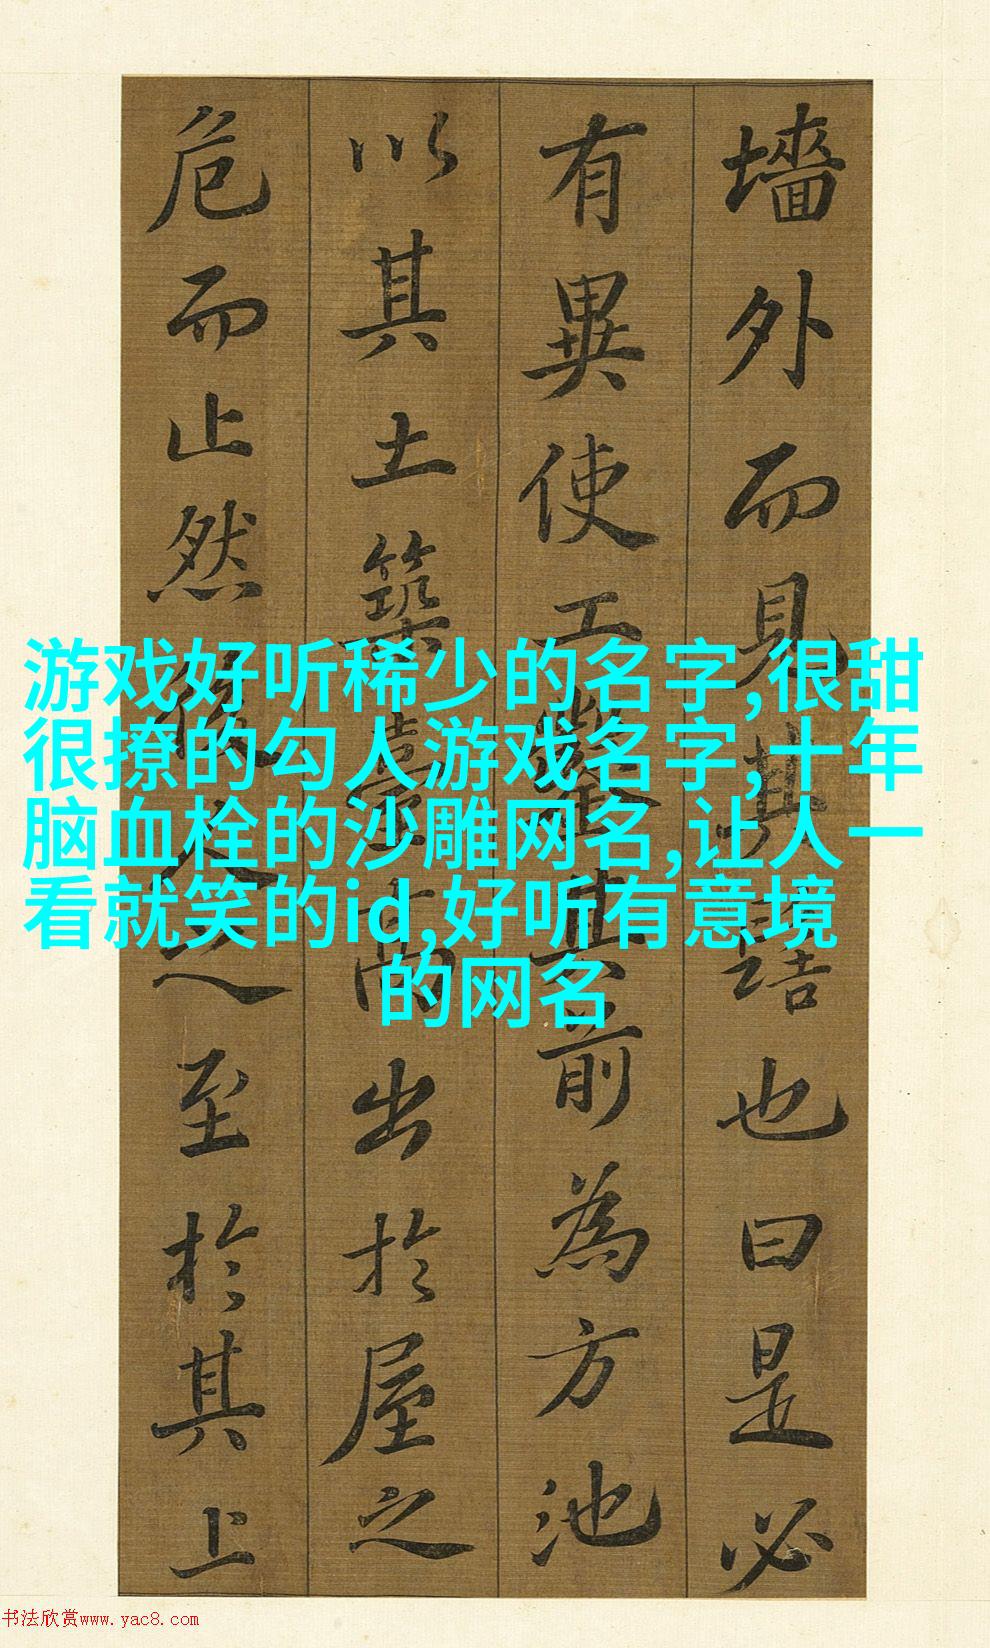 墻外而見其髻也曰是必
有異使工鑿其前為方池
以其土築臺高出於屋之
危而止然後人之至於其上
游戏好听稀少的名字,很甜
很撩的勾人游戏名字,十年
脑血栓的沙雕网名,让人一
看就笑的id,好听有意境
的网名
书法欣赏www.yac8.com